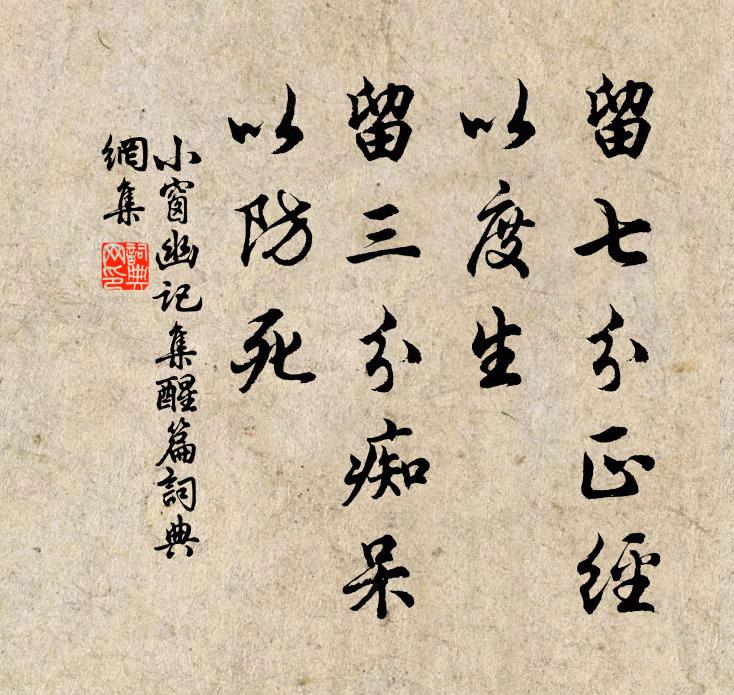 留七分正經
以度生
留三分痴呆
以防死
小窗幽记集醒篇詞典
網集
詞典
网印